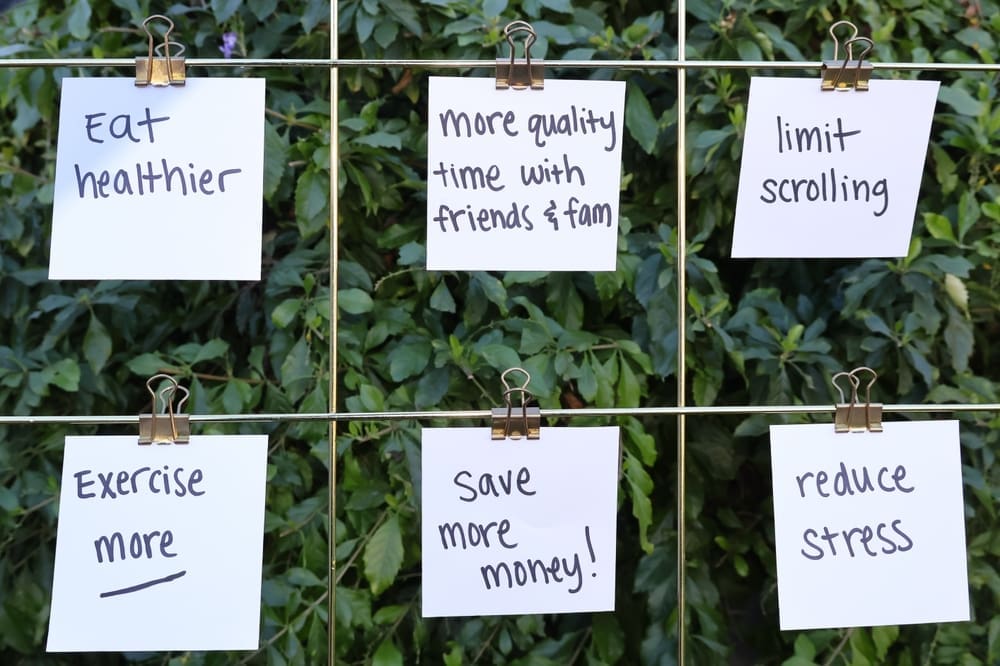 Eat
healthier
more quality
time with
friends & fam
limit
scrolling
Exercise
more
save
more
money!
reduce
stress